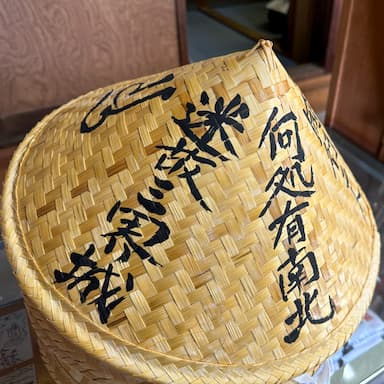 何処有南北
迷故三界城